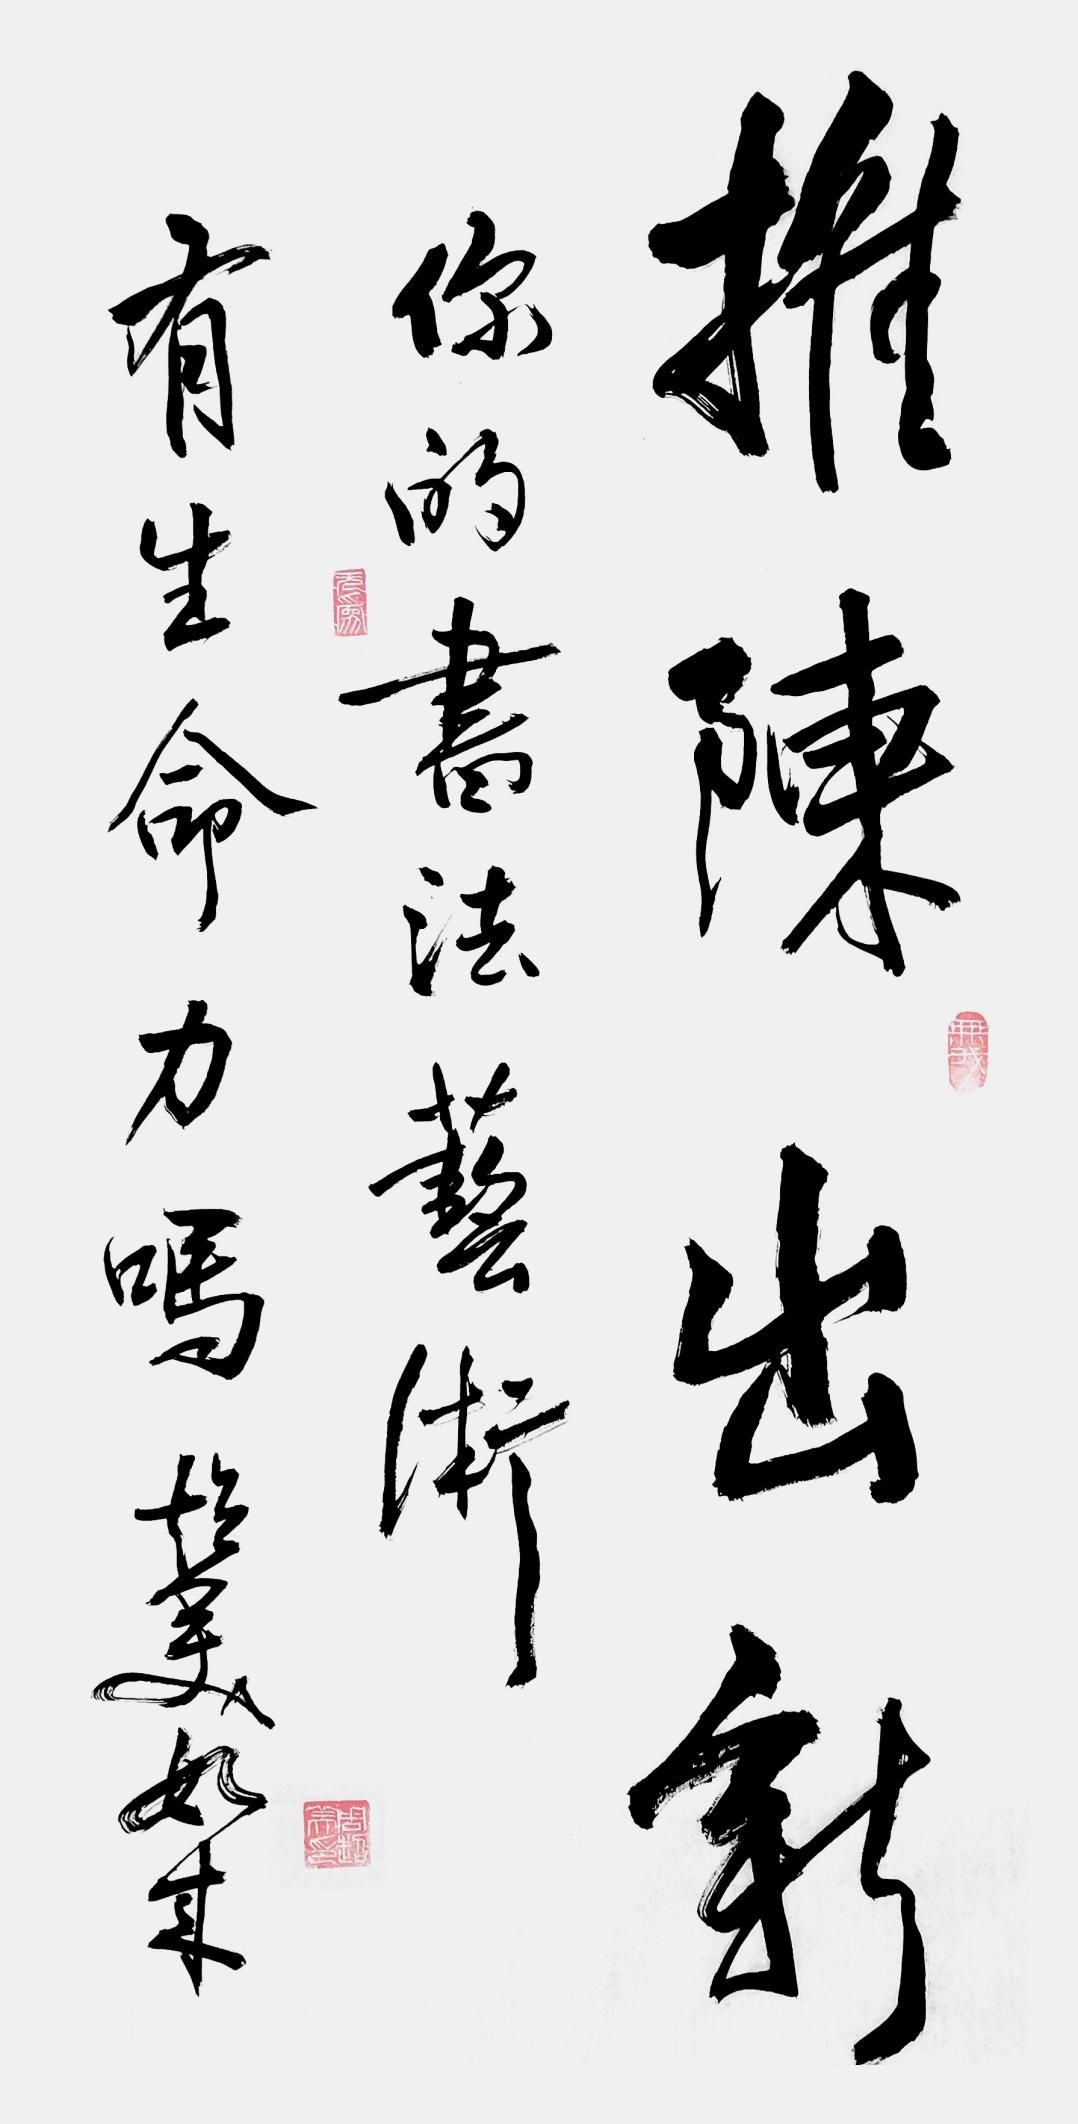 推陳出新
你的書法藝術
有生命力嗎 超美如来
無我